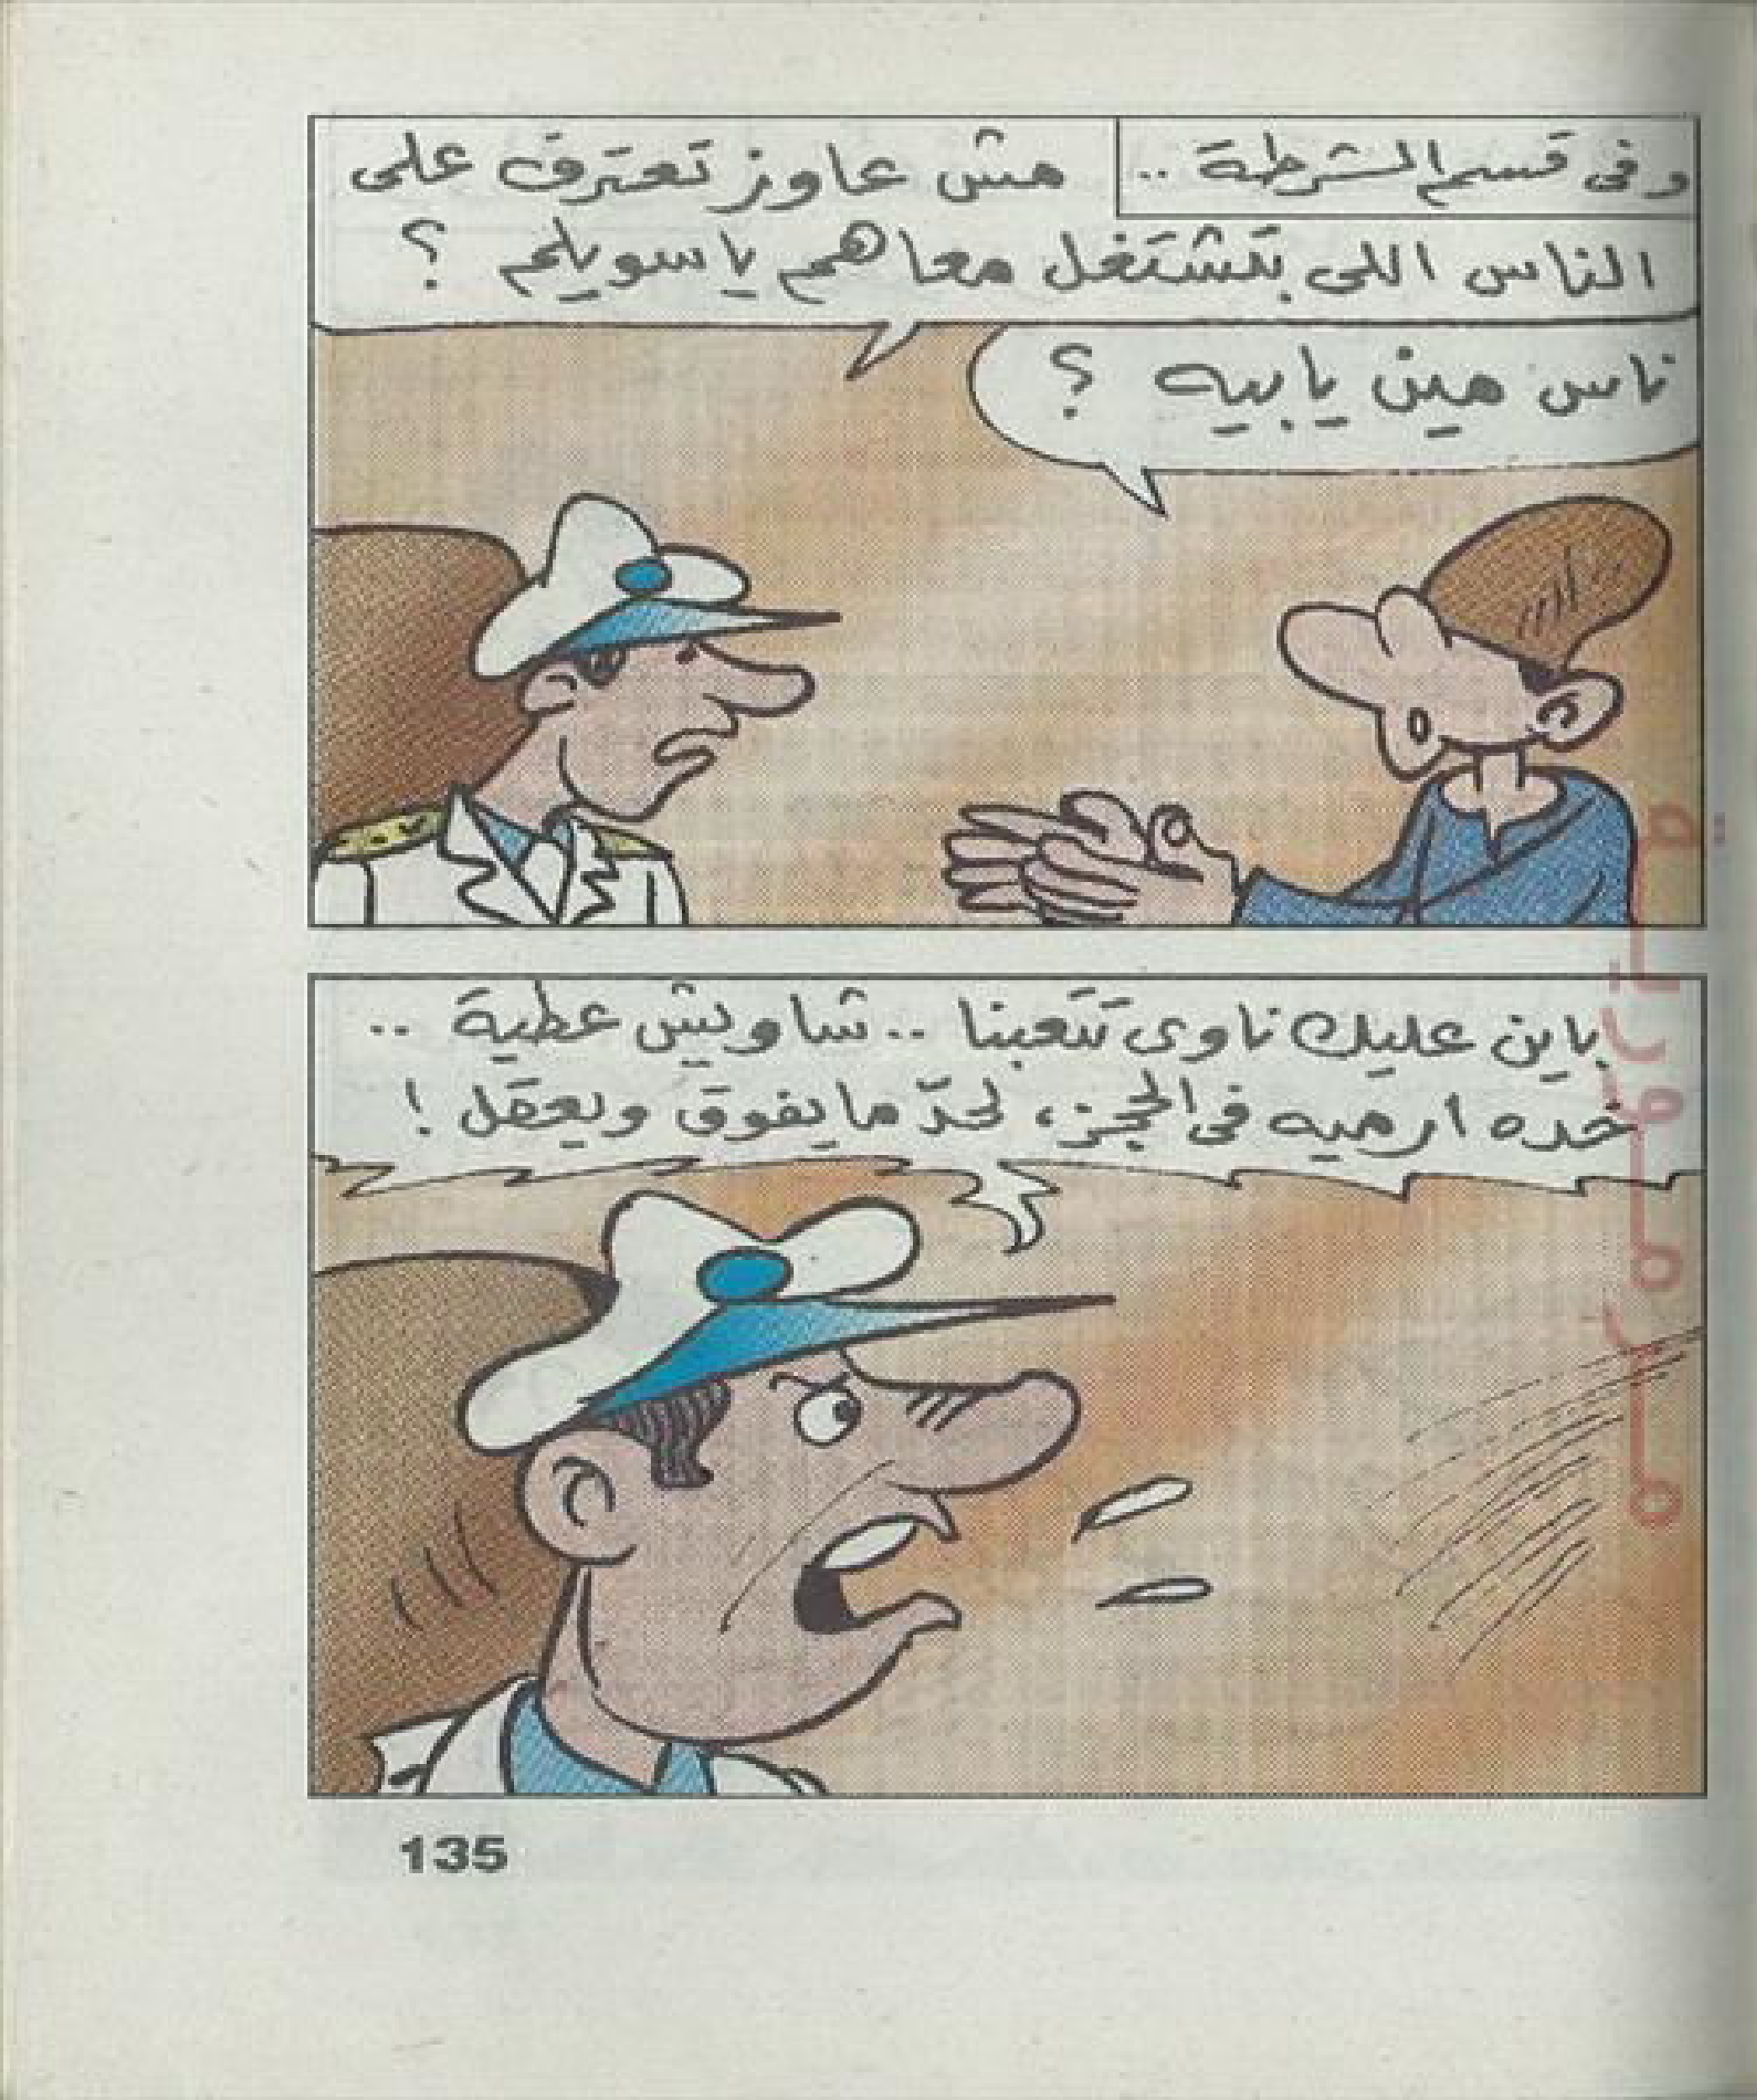 وفى قسم الشرطة ..
مش عاوز تعترف على
الناس اللى بتشتغل معاهم يا سويلم ؟
ناس مين يا بيه ؟
باين عليك ناوى تتعبنا .. شاويش عطية ..
خده ارميه فى الحجز، لحدّ ما يفوق ويعقل !
135